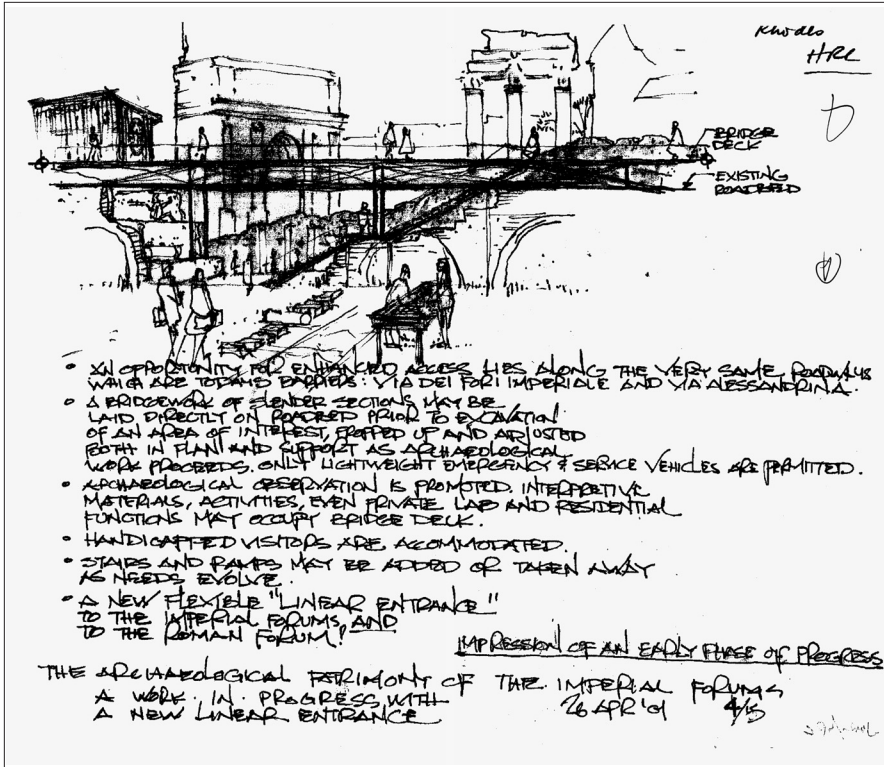 HRC
BRIDGE
DECK
EXISTING
ROADBED
• AN OPPORTUNITY FOR ENHANCED ACCESS LIES ALONG THE VERY SAME ROADWAYS
WHICH ARE TODAY'S BARRIERS: VIA DEI FORI IMPERIALE AND VIA ALESSANDRINA.
• A BRIDGEWORK OF SLENDER SECTIONS MAY BE
LAID DIRECTLY ON ROADBED PRIOR TO EXCAVATION
OF AN AREA OF INTEREST, PROPPED UP AND ADJUSTED
BOTH IN PLAN AND SUPPORT AS ARCHAEOLOGICAL
WORK PROCEEDS. ONLY LIGHTWEIGHT EMERGENCY & SERVICE VEHICLES ARE PERMITTED.
• ARCHAEOLOGICAL OBSERVATION IS PROMOTED. INTERPRETIVE
MATERIALS, ACTIVITIES, EVEN PRIVATE LAB AND RESIDENTIAL
FUNCTIONS MAY OCCUPY BRIDGE DECK.
• HANDICAPPED VISITORS ARE ACCOMMODATED.
• STAIRS AND RAMPS MAY BE ADDED OR TAKEN AWAY
AS NEEDS EVOLVE.
• A NEW FLEXIBLE "LINEAR ENTRANCE"
TO THE IMPERIAL FORUMS, AND
TO THE ROMAN FORUM!
IMPRESSION OF AN EARLY PHASE OF PROGRESS
THE ARCHAEOLOGICAL PATRIMONY OF THE IMPERIAL FORUMS
A WORK IN PROGRESS WITH
A NEW LINEAR ENTRANCE
26 APR '01 4/15